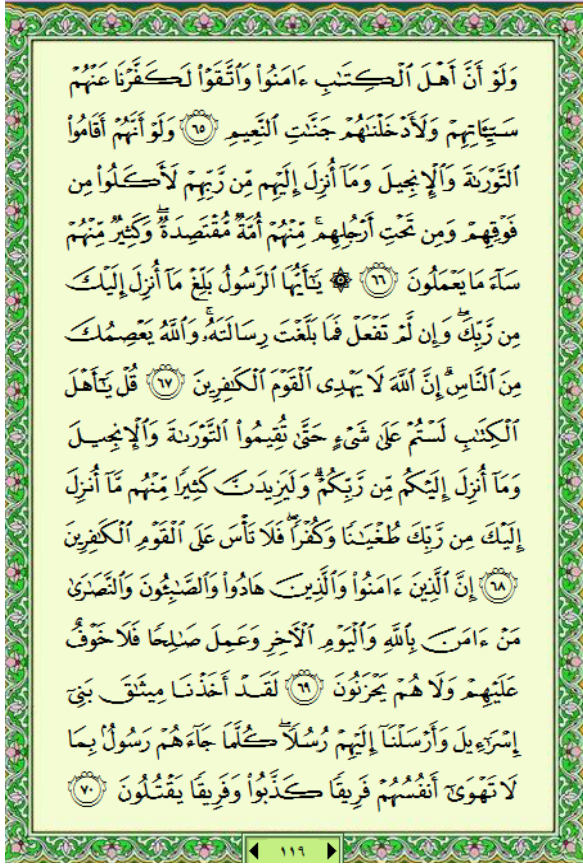 وَلَوۡ أَنَّ أَهۡلَ ٱلۡكِتَٰبِ ءَامَنُواْ وَٱتَّقَوۡاْ لَكَفَّرۡنَا عَنۡهُمۡ
سَيِّـَٔاتِهِمۡ وَلَأَدۡخَلۡنَٰهُمۡ جَنَّٰتِ ٱلنَّعِيمِ ٦٥ وَلَوۡ أَنَّهُمۡ أَقَامُواْ
ٱلتَّوۡرَىٰةَ وَٱلۡإِنجِيلَ وَمَآ أُنزِلَ إِلَيۡهِم مِّن رَّبِّهِمۡ لَأَكَلُواْ مِن
فَوۡقِهِمۡ وَمِن تَحۡتِ أَرۡجُلِهِمۚ مِّنۡهُمۡ أُمَّةٞ مُّقۡتَصِدَةٞۖ وَكَثِيرٞ مِّنۡهُمۡ
سَآءَ مَا يَعۡمَلُونَ ٦٦ ۞ يَٰٓأَيُّهَا ٱلرَّسُولُ بَلِّغۡ مَآ أُنزِلَ إِلَيۡكَ
مِن رَّبِّكَۖ وَإِن لَّمۡ تَفۡعَلۡ فَمَا بَلَّغۡتَ رِسَالَتَهُۥۚ وَٱللَّهُ يَعۡصِمُكَ
مِنَ ٱلنَّاسِۗ إِنَّ ٱللَّهَ لَا يَهۡدِي ٱلۡقَوۡمَ ٱلۡكَٰفِرِينَ ٦٧ قُلۡ يَٰٓأَهۡلَ
ٱلۡكِتَٰبِ لَسۡتُمۡ عَلَىٰ شَيۡءٍ حَتَّىٰ تُقِيمُواْ ٱلتَّوۡرَىٰةَ وَٱلۡإِنجِيلَ
وَمَآ أُنزِلَ إِلَيۡكُم مِّن رَّبِّكُمۡۗ وَلَيَزِيدَنَّ كَثِيرٗا مِّنۡهُم مَّآ أُنزِلَ
إِلَيۡكَ مِن رَّبِّكَ طُغۡيَٰنٗا وَكُفۡرٗاۖ فَلَا تَأۡسَ عَلَى ٱلۡقَوۡمِ ٱلۡكَٰفِرِينَ
٦٨ إِنَّ ٱلَّذِينَ ءَامَنُواْ وَٱلَّذِينَ هَادُواْ وَٱلصَّٰبِـُٔونَ وَٱلنَّصَٰرَىٰ
مَنۡ ءَامَنَ بِٱللَّهِ وَٱلۡيَوۡمِ ٱلۡأٓخِرِ وَعَمِلَ صَٰلِحٗا فَلَا خَوۡفٌ
عَلَيۡهِمۡ وَلَا هُمۡ يَحۡزَنُونَ ٦٩ لَقَدۡ أَخَذۡنَا مِيثَٰقَ بَنِيٓ
إِسۡرَٰٓءِيلَ وَأَرۡسَلۡنَآ إِلَيۡهِمۡ رُسُلٗاۖ كُلَّمَا جَآءَهُمۡ رَسُولُۢ بِمَا
لَا تَهۡوَىٰٓ أَنفُسُهُمۡ فَرِيقٗا كَذَّبُواْ وَفَرِيقٗا يَقۡتُلُونَ ٧٠
١١٩